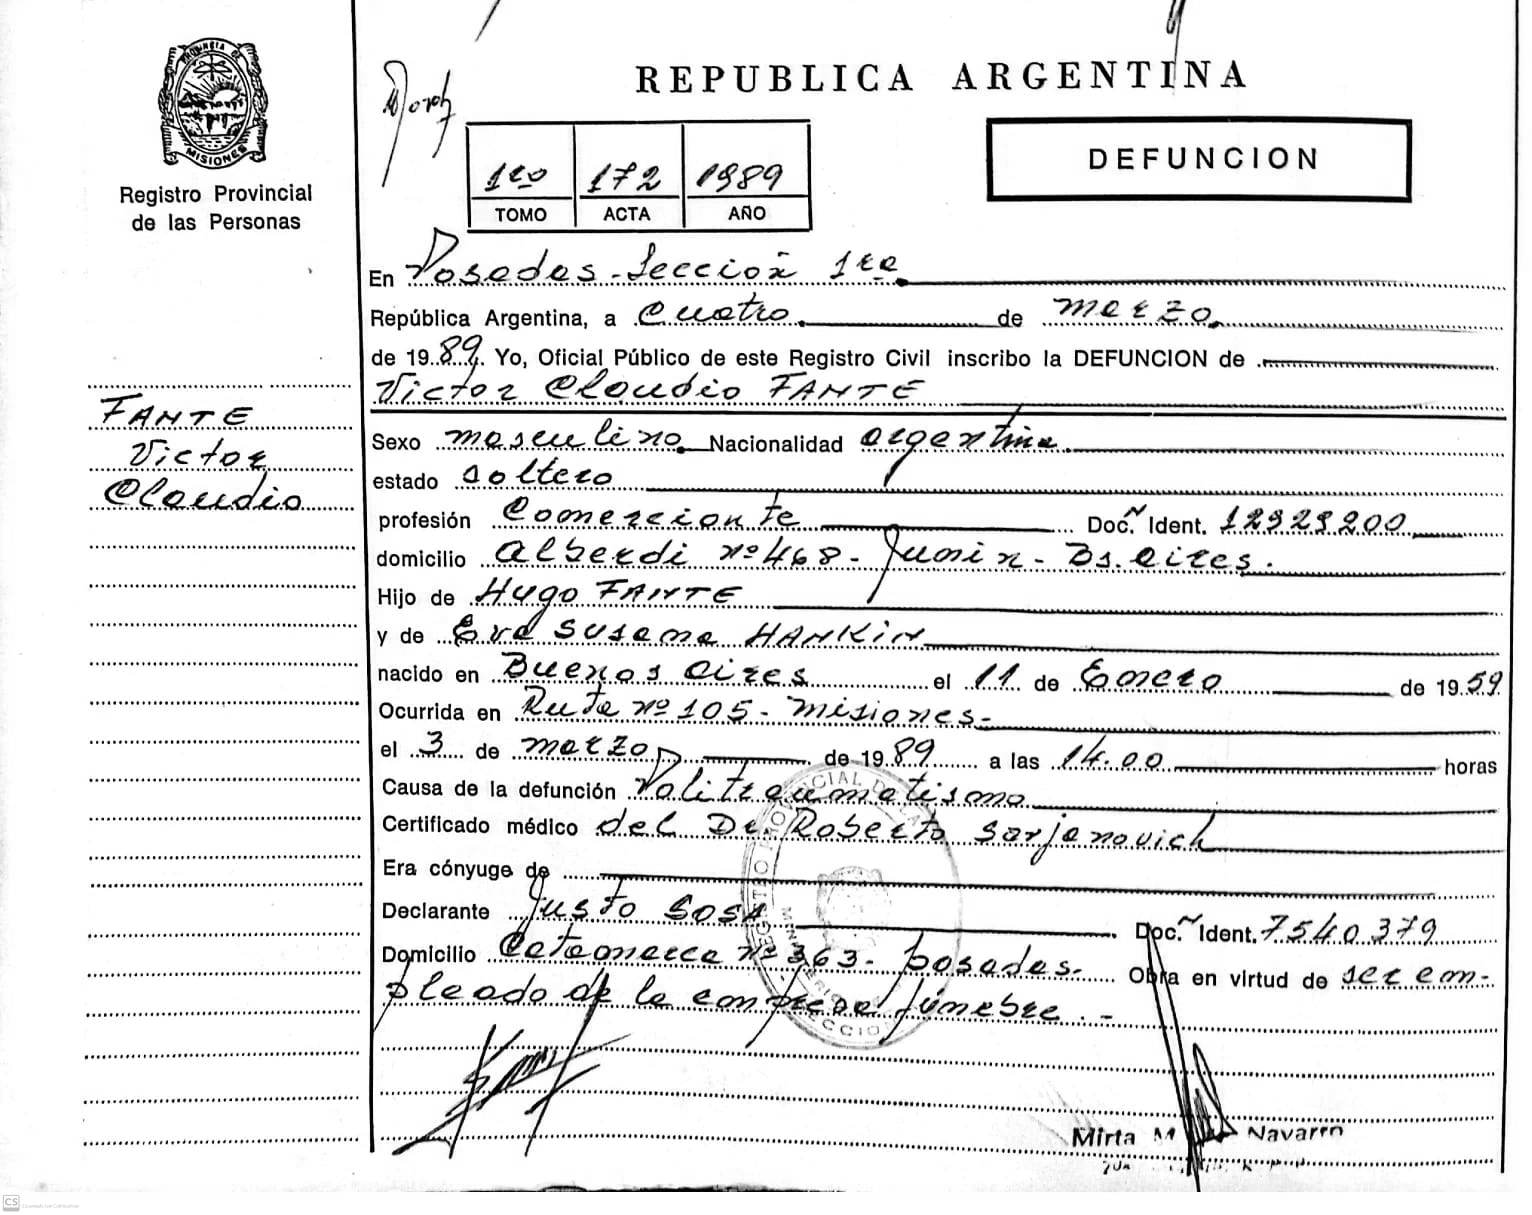 PROVINCIA DE
MISIONES
Registro Provincial
de las Personas
REPUBLICA ARGENTINA
DEFUNCION
1ro 172 1989
TOMO ACTA AÑO
En Posadas - Sección 1ra
República Argentina, a Cuatro de marzo
de 1989. Yo, Oficial Público de este Registro Civil inscribo la DEFUNCION de
Victor Claudio FANTE
FANTE
Victor
Claudio
Sexo masculino Nacionalidad argentina
estado soltero
profesión Comerciante Doc. Ident. 12929200
domicilio Alberdi nº 468 - Junin - Bs. Aires.
Hijo de Hugo FANTE
y de Eva Susana HANKIN
nacido en Buenos Aires el 11 de Enero de 1959
Ocurrida en Ruta nº 105 - Misiones -
el 3 de marzo de 1989 a las 14.00 horas
Causa de la defunción Politraumatismo
Certificado médico del Dr. Roberto Sarjanovich
Era cónyuge de
Declarante Justo SOSA Doc. Ident. 7540379
Domicilio Catamarca nº 363 - Posadas - Obra en virtud de ser em-
pleado de la empresa fúnebre. -
Mirta M Navarro
CS